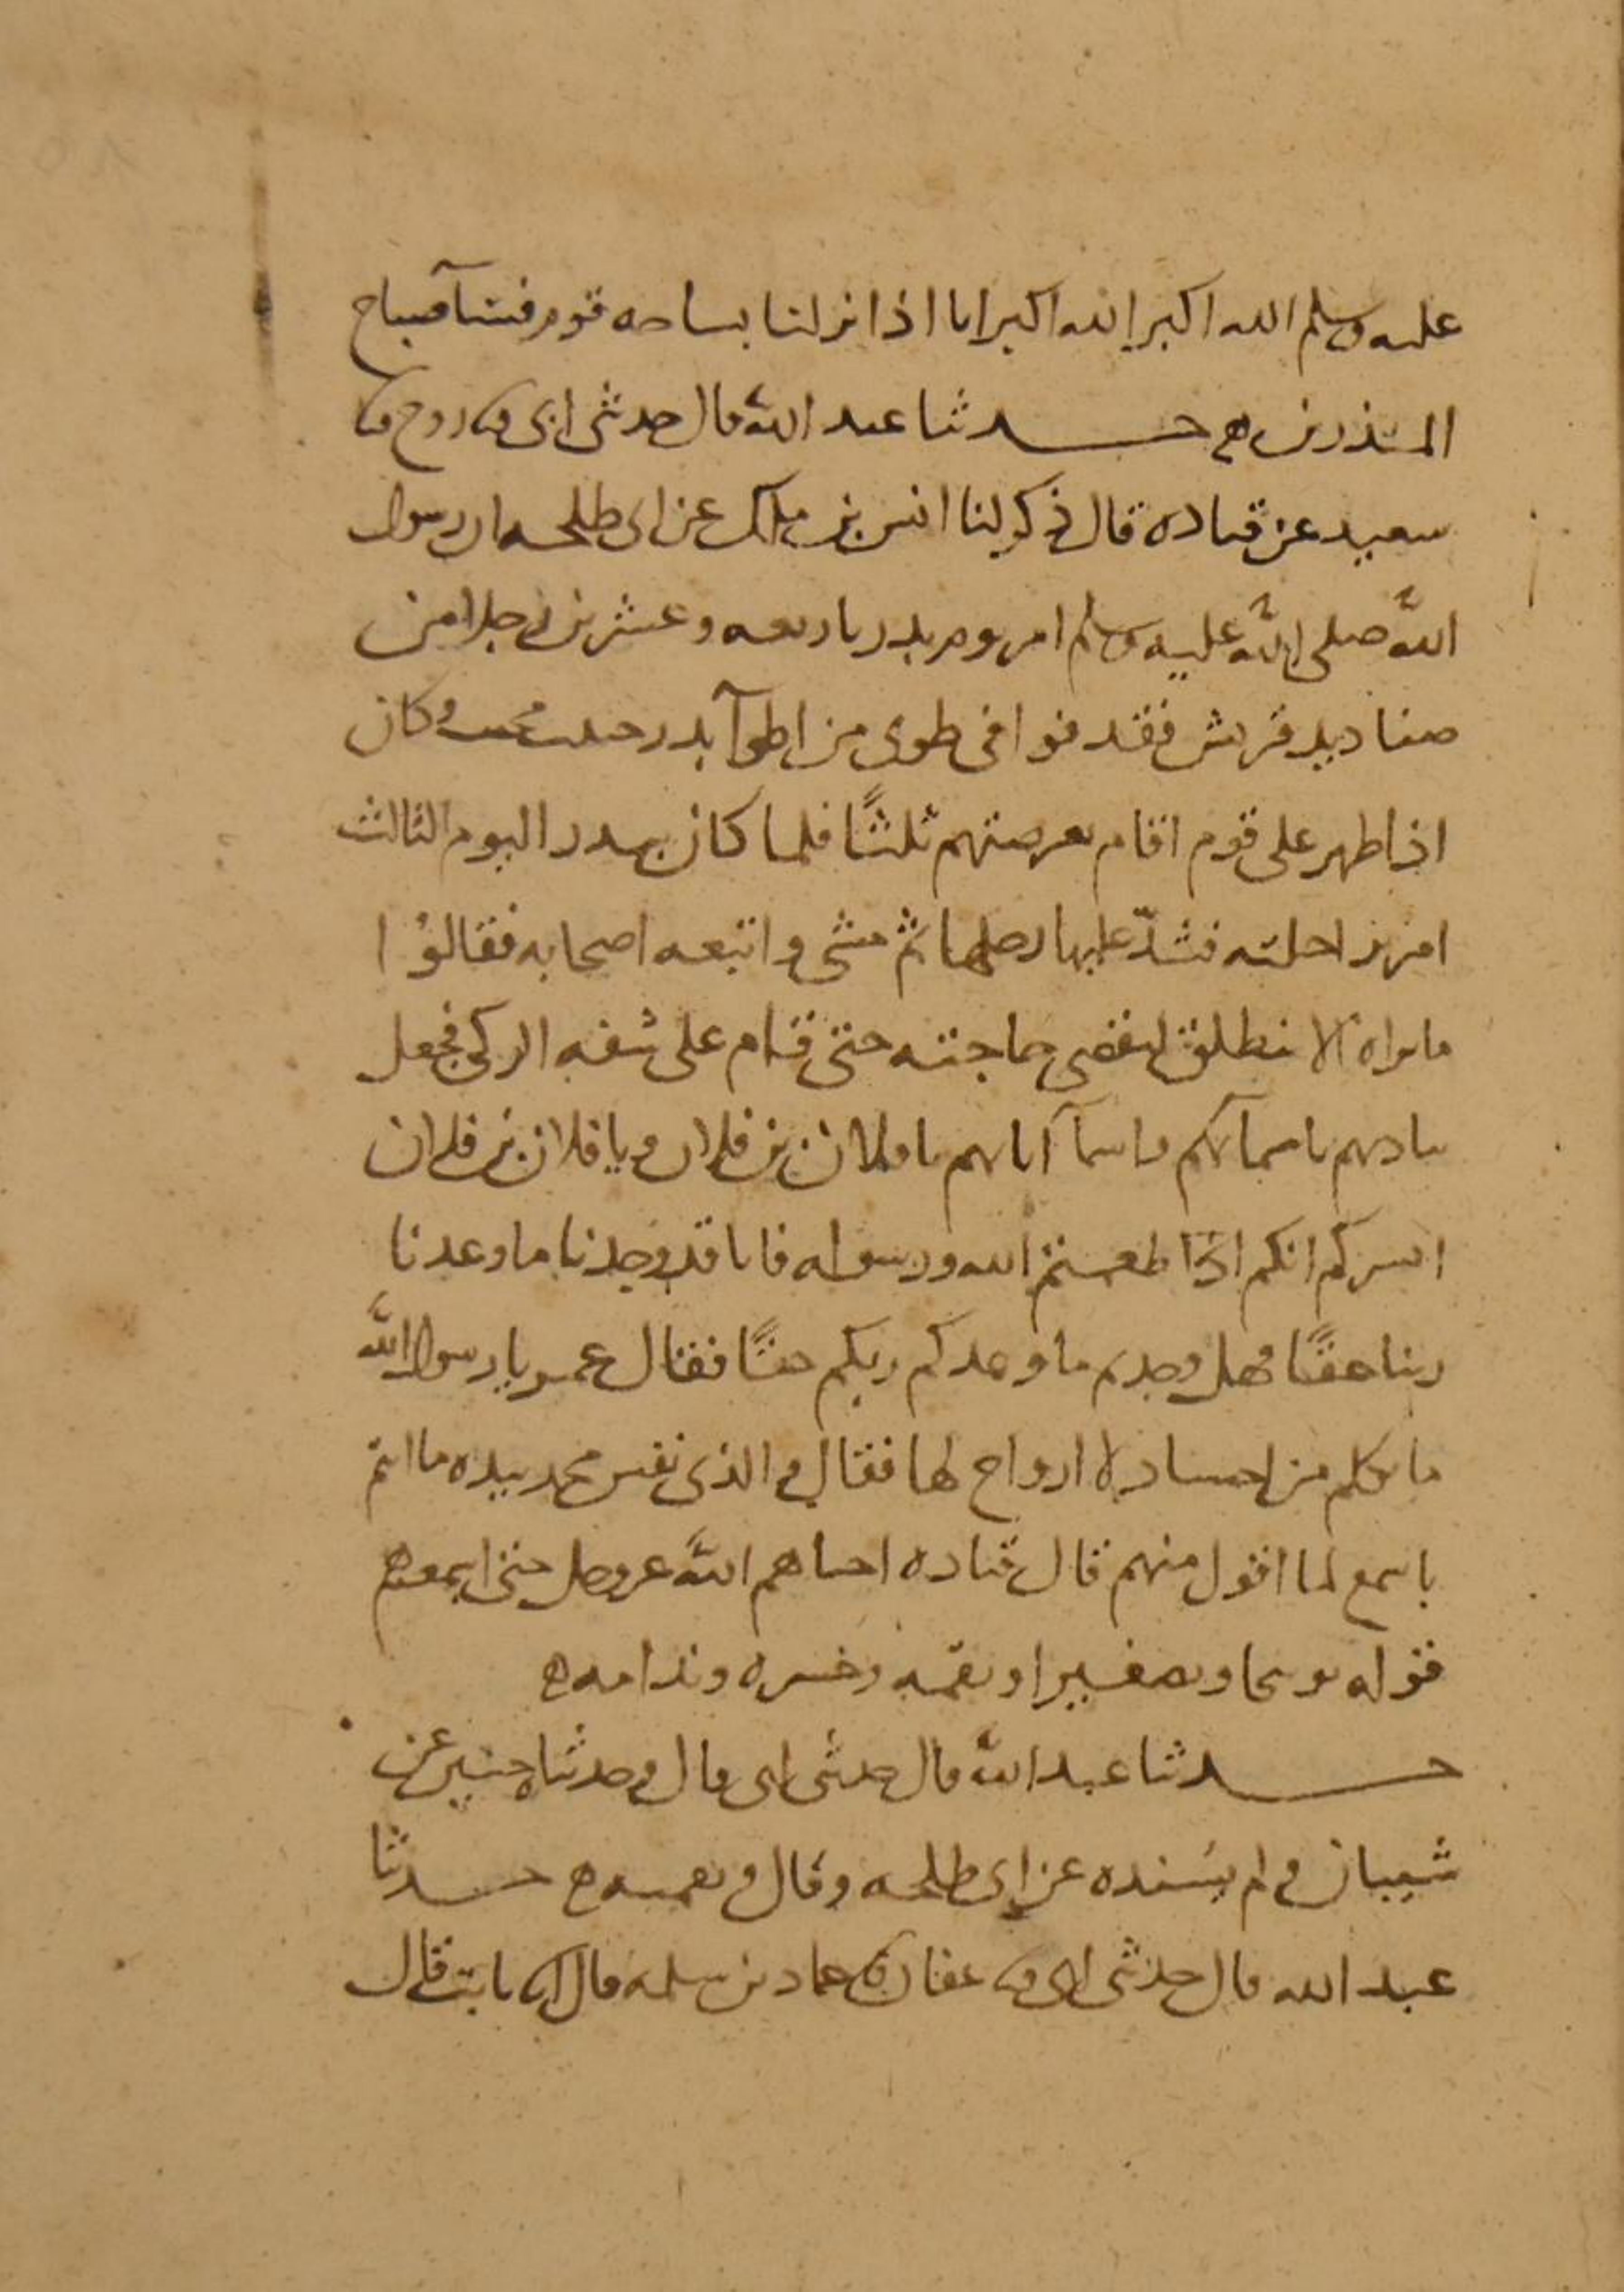 عليه وسلم الله اكبر الله اكبر انا اذا نزلنا بساحه قوم فسآ صباح
المنذرين ه حدثنا عبد الله قال حدثنى ابى ثنا روح ثنا
سعيد عن قتاده قال ذكر لنا انس بن ملك عن ابى طلحه ان رسول
الله صلى الله عليه وسلم امر يوم بدر باربعه وعشرين رجلا من
صناديد قريش فقذفوا فى طوى من اطوآ بدر خبيث مخبث وكان
اذا ظهر على قوم اقام بعرصتهم ثلثًا فلما كان ببدر اليوم الثالث
امر براحلته فشدّ عليها رحلها ثم مشى واتبعه اصحابه فقالوُا
ما نراه الا ينطلق ليقضى حاجته حتى قام على شفه الركى فجعل
يناديهم باسمائهم واسمآ ابائهم يا فلان بن فلان ويا فلان بن فلان
ايسركم انكم اطعتم الله ورسوله فانا قد وجدنا ما وعدنا
ربنا حقًا فهل وجدتم ما وعدكم ربكم حقًا فقال عمر يا رسول الله
ما تكلم من اجساد لا ارواح لها فقال والذى نفس محمد بيده ما انتم
باسمع لما اقول منهم قال قتاده احياهم الله عز وجل حتى اسمعهم
قوله توبيخا وتصغيرا ونقمه وحسره وندامه ه
حدثنا عبد الله قال حدثنى ابى قال وحدثناه حسين عن
شيبان ولم يُسنده عن ابى طلحه وقال ونقمه ه حدثنا
عبد الله قال حدثنى ابى ثنا عفان ثنا حماد بن سلمه قال انا ثابت قال